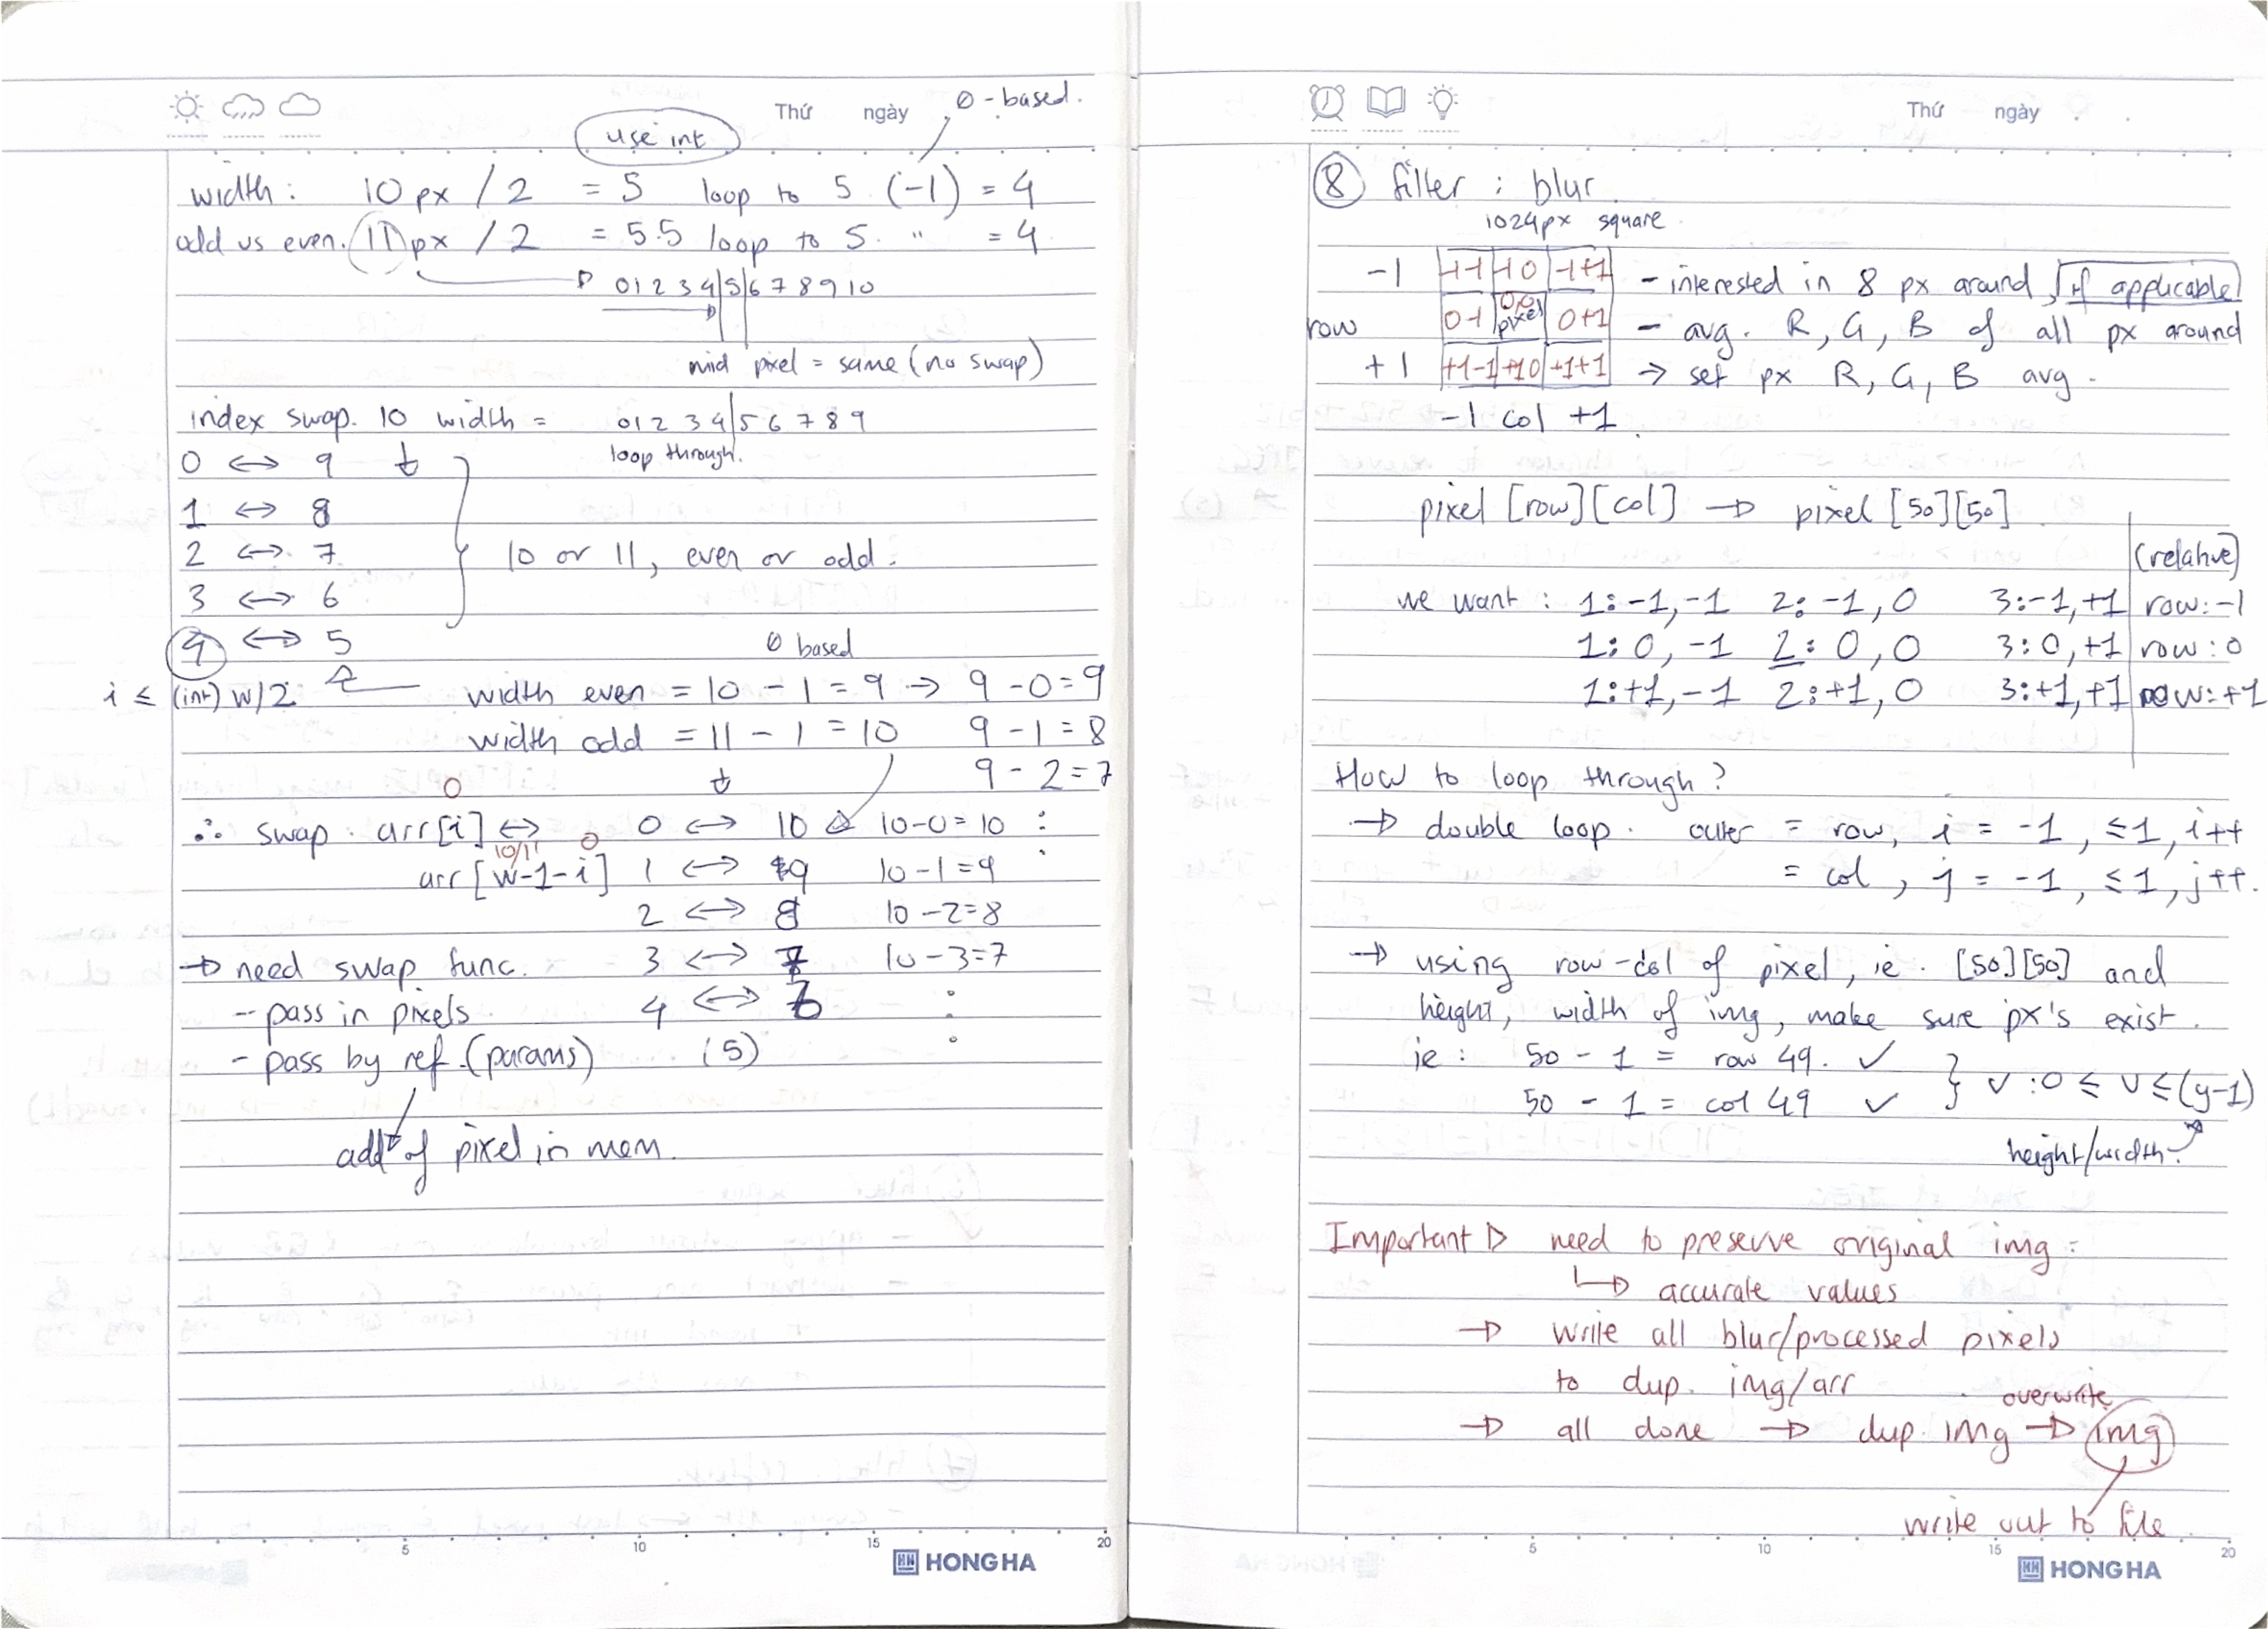 Thứ ngày 0 - based.
use int
width: 10 px / 2 = 5 loop to 5 (-1) = 4
odd vs even. 11 px / 2 = 5.5 loop to 5. " = 4
0 1 2 3 4 | 5 | 6 7 8 9 10
mid pixel = same (no swap)
index swap. 10 width = 0 1 2 3 4 | 5 6 7 8 9
loop through.
0 ↔ 9
1 ↔ 8
2 ↔ 7
3 ↔ 6
10 or 11, even or odd.
4 ↔ 5
0 based
i ≤ (int) w/2
width even = 10 - 1 = 9 → 9 - 0 = 9
width odd = 11 - 1 = 10 9 - 1 = 8
9 - 2 = 7
0
∴ swap . arr[i] ↔ 0 ↔ 10 10-0 = 10 :
10/11 0
arr [w-1-i] 1 ↔ 9 10 - 1 = 9 :
2 ↔ 8 10 - 2 = 8
→ need swap func. 3 ↔ 7 10 - 3 = 7
- pass in pixels 4 ↔ 6 :
- pass by ref. (params) (5)
add of pixel in mem.
5 10 15 20
HONG HA
Thứ ngày
8 filter : blur
1024px square
-1 -1-1 -10 -1+1 - interested in 8 px around, if applicable
row 0-1 0,0 pixel 0+1 - avg. R, G, B of all px around
+1 +1-1 +10 +1+1 → set px R, G, B avg.
-1 col +1
pixel [row][col] → pixel [50][50]
(relative)
we want : 1: -1, -1 2: -1, 0 3: -1, +1 row: -1
1: 0, -1 2: 0, 0 3: 0, +1 row: 0
1: +1, -1 2: +1, 0 3: +1, +1 row: +1
How to loop through?
→ double loop. outer = row, i = -1, ≤1, i++
= col, j = -1, ≤1, j++.
→ using row-col of pixel, ie. [50][50] and
height, width of img, make sure px's exist.
ie: 50 - 1 = row 49. ✓
50 - 1 = col 49 ✓ } v : 0 ≤ v ≤ (y-1)
height/width.
Important ▷ need to preserve original img :
↳ accurate values
→ write all blur/processed pixels
to dup. img/arr
overwrite
→ all done → dup. img → img
write out to file.
5 10 15 20
HONG HA